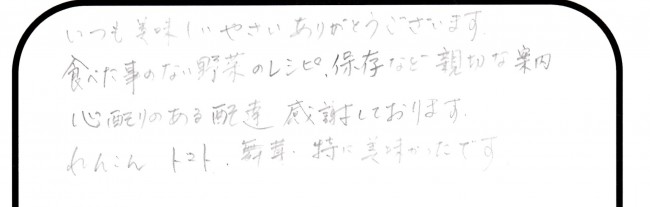 いつも美味しいやさいありがとうございます
食べた事のない野菜のレシピ、保存など親切な案内
心配りのある配達 感謝しております。
れんこん トマト、舞茸、特に美味かったです